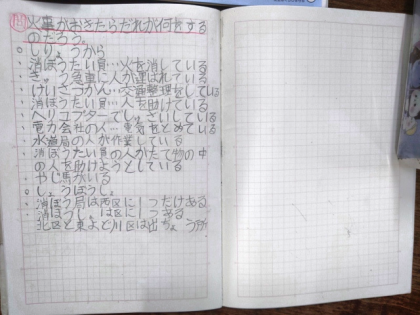 問火事がおきたらだれが何をする
のだろう。
○しりょうから
・消ぼうたい員…火を消している
・きゅう急車に人が運ばれている
・けいさつかん…交通整理をしている
・消ぼうたい員…人を助けている
・ヘリコプターでしょうさいしている
・電力会社の人…電気をとめている
・水道局の人が作業している
・消ぼうたい員の人がたて物の中
の人を助けようとしている
・やじ馬がいる
○しょうぼうしょ
・消ぼう局は西区に1つだけある
・消ぼうしょは区に1つある
北区と東よど川区は出ちょう所